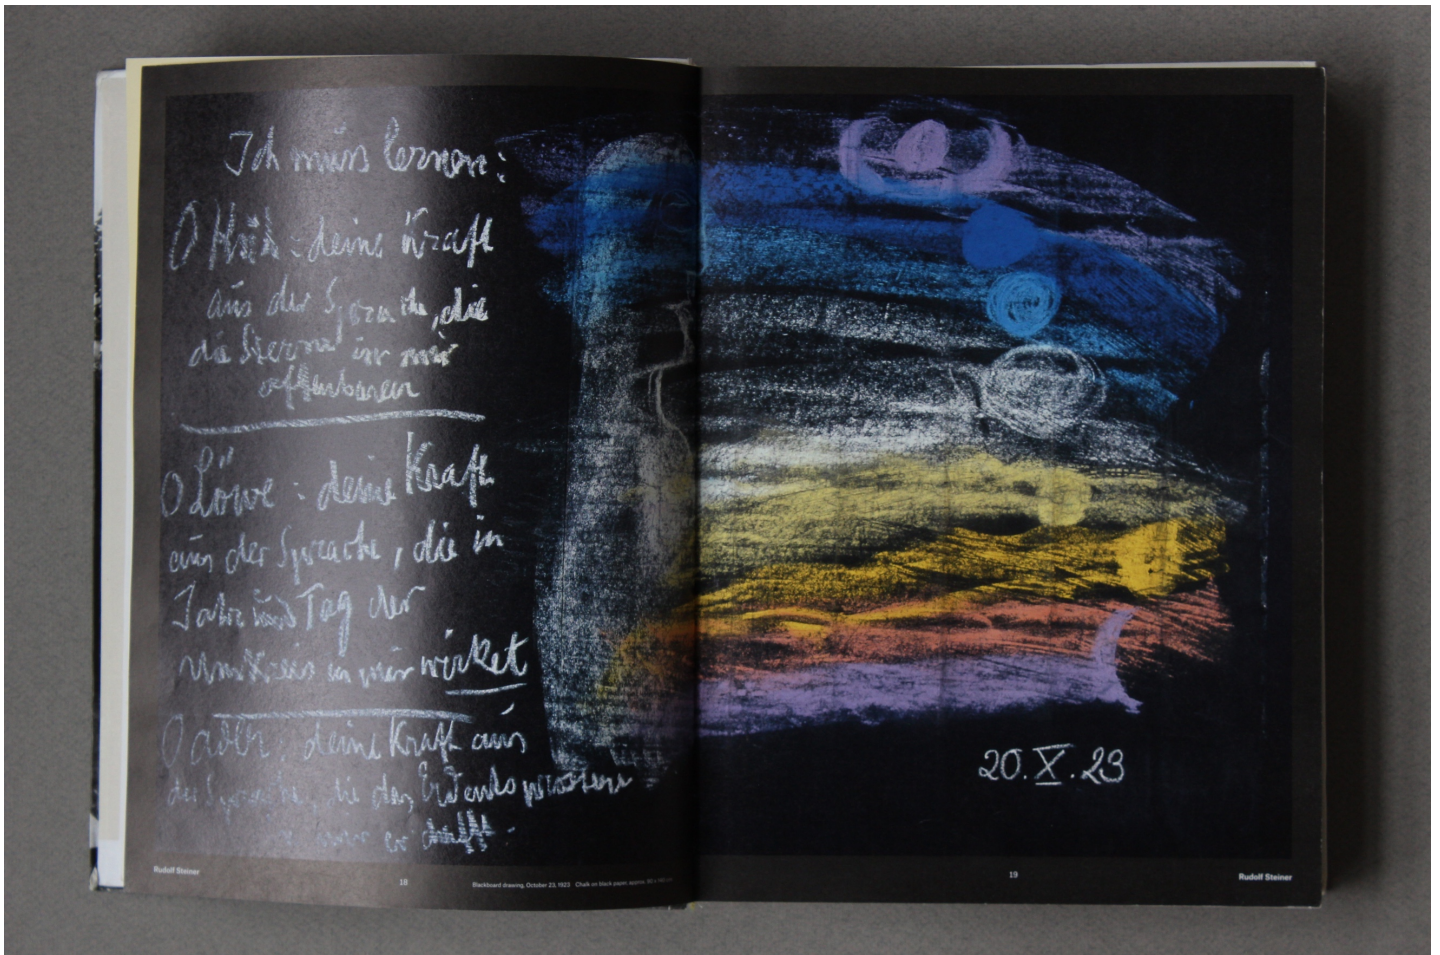 Ich muss lernen:
O Kuh: deine Kraft
aus der Sprache, die
die Sterne in mir
offenbaren
O Löwe: deine Kraft
aus der Sprache, die in
Jahr und Tag der
Umkreis in mir wirket
O Adler: deine Kraft aus
der Sprache, die das Erdentsprossene
in mir erschafft.
20.X.23
Rudolf Steiner
18
Blackboard drawing, October 23, 1923 Chalk on black paper, approx.
19
Rudolf Steiner